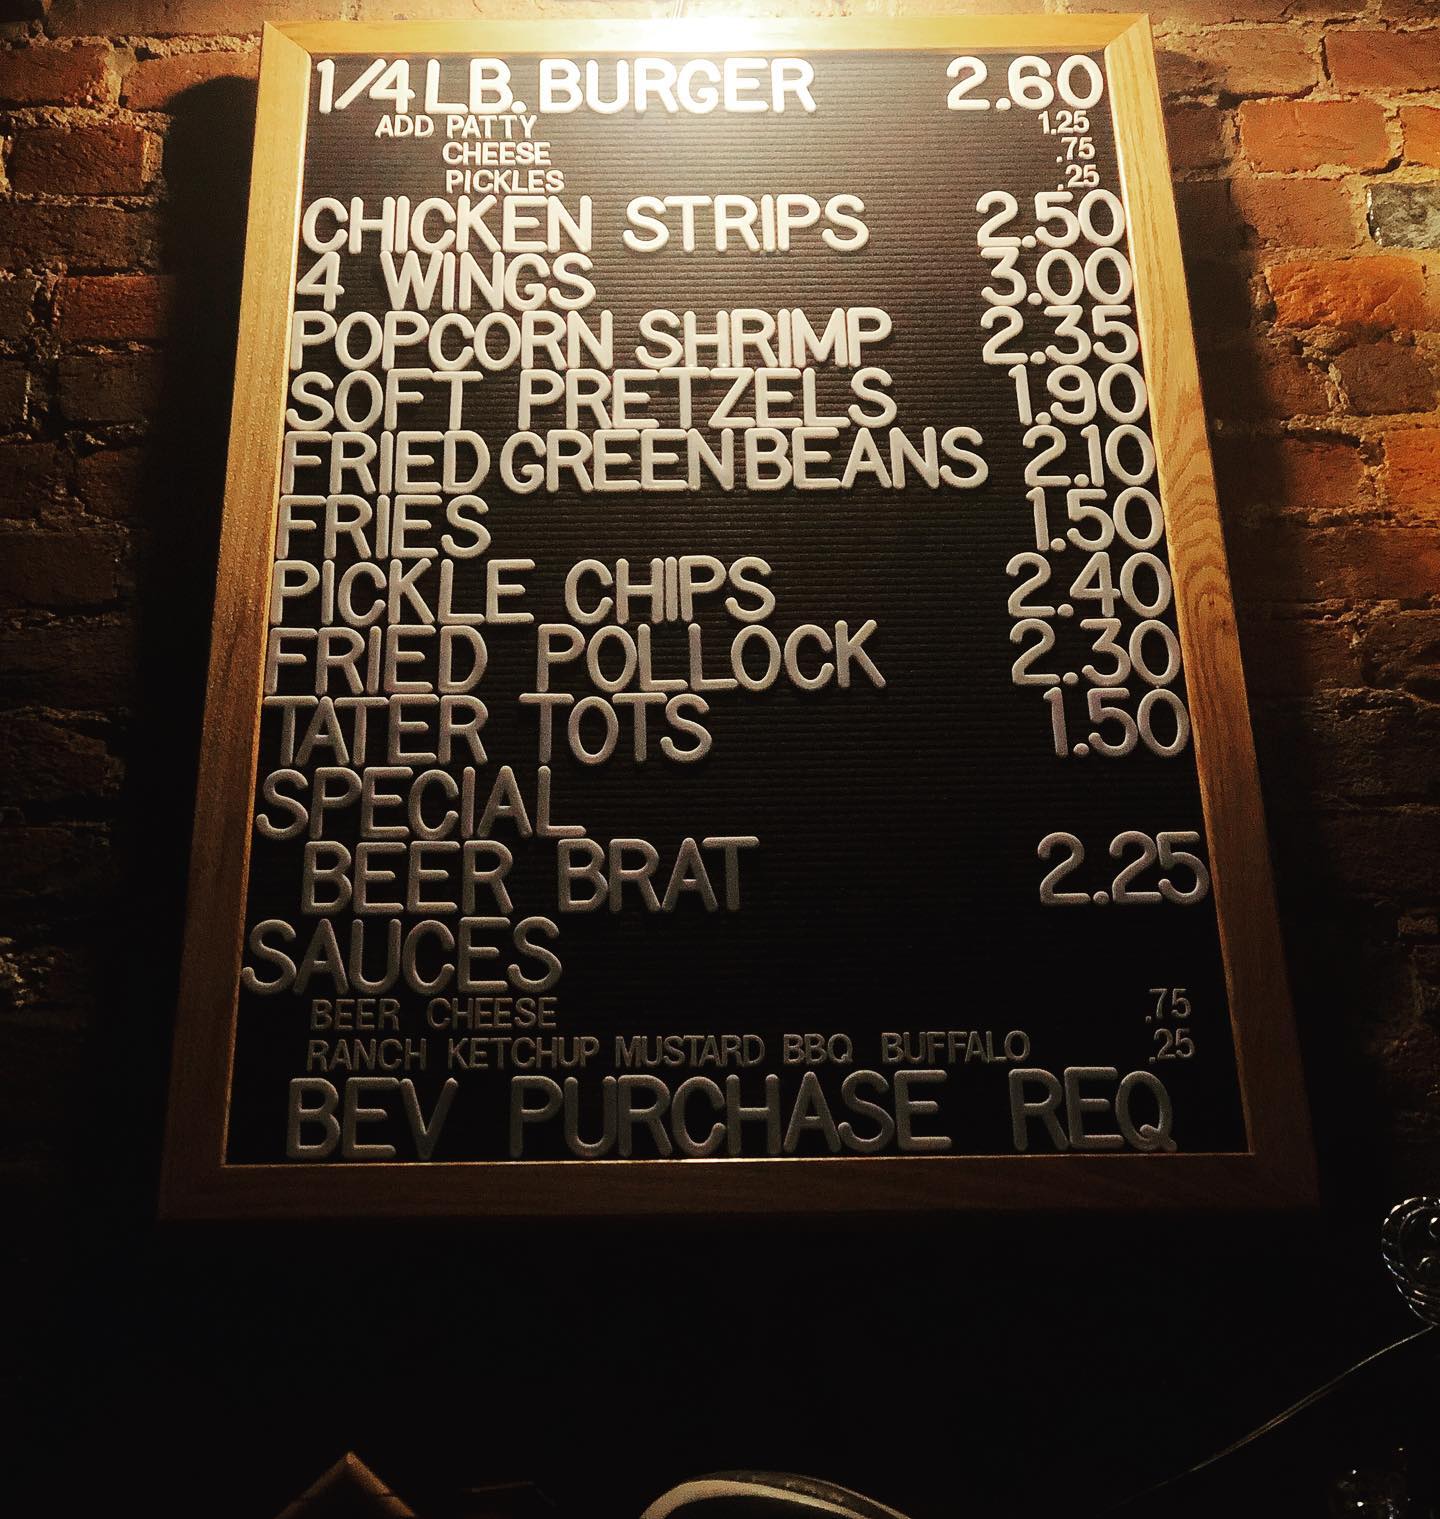 1/4 LB. BURGER 2.60
ADD PATTY 1.25
CHEESE .75
PICKLES .25
CHICKEN STRIPS 2.50
4 WINGS 3.00
POPCORN SHRIMP 2.35
SOFT PRETZELS 1.90
FRIED GREEN BEANS 2.10
FRIES 1.50
PICKLE CHIPS 2.40
FRIED POLLOCK 2.30
TATER TOTS 1.50
SPECIAL
BEER BRAT 2.25
SAUCES
BEER CHEESE .75
RANCH KETCHUP MUSTARD BBQ BUFFALO .25
BEV PURCHASE REQ